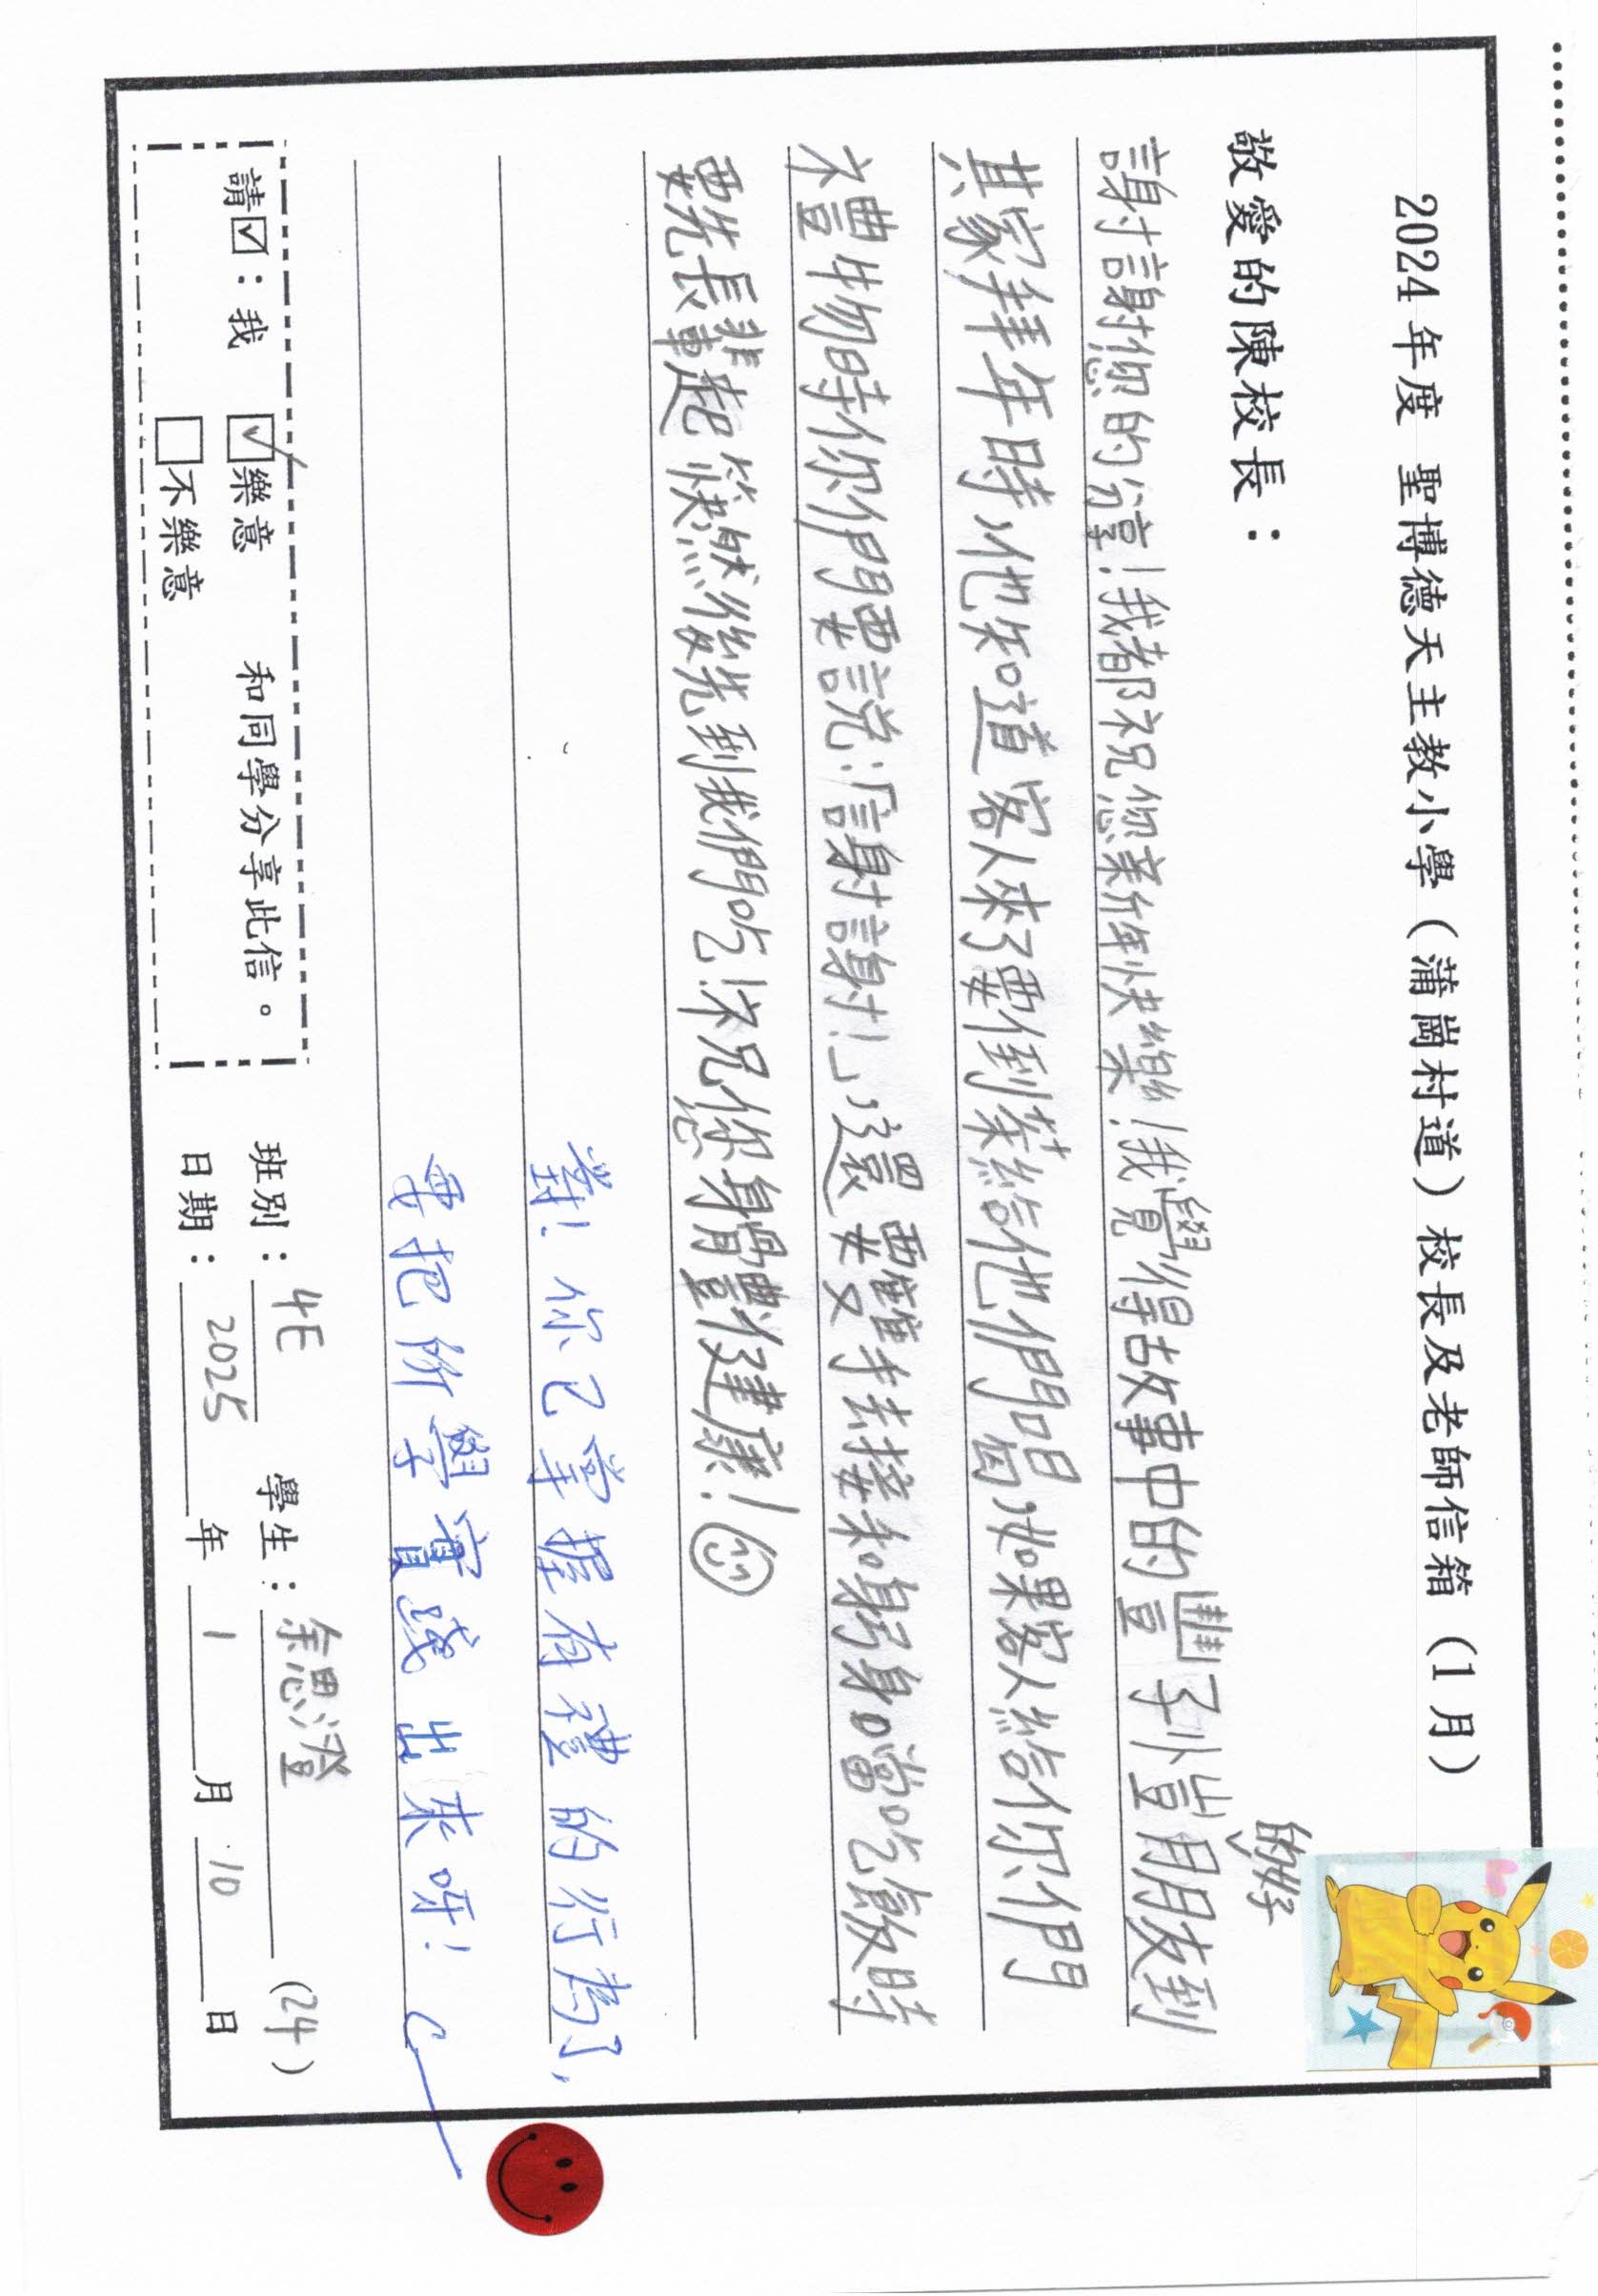 2024年度 聖博德天主教小學（蒲崗村道）校長及老師信箱（1月）
敬愛的陳校長：
的好
謝謝您的分享！我都祝您新年快樂！我覺得故事中的豐子愷朋友到
其家拜年時，他知道客人來了要倒茶給他們喝，如果客人給你們
禮物時你們要說：「謝謝！」，還要雙手去接和躬身，當吃飯時
要先長輩起筷然後先到我們吃！祝您身體健康！
對！你已掌握有禮的行為了，
要把所學實踐出來呀！
請☑：我 ☑樂意 和同學分享此信。
□不樂意
班別：4E 學生：余思澄 (24)
日期：2025年1月10日